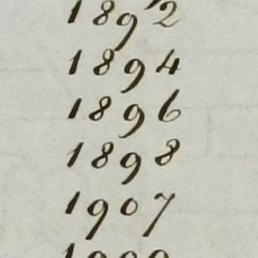 1892
1894
1896
1898
1907